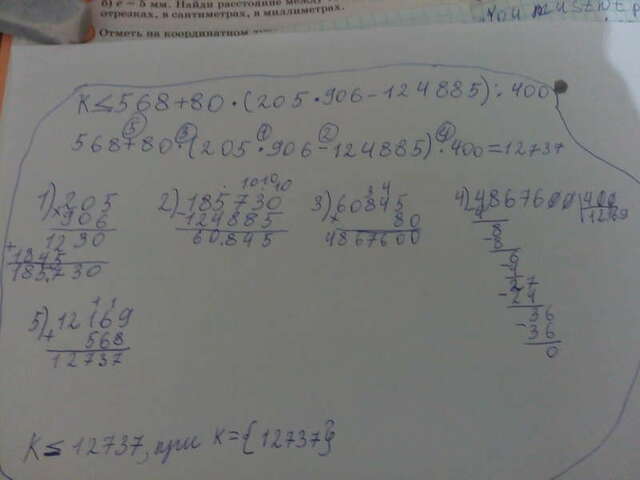 б) е = 5 мм. Найди расстояние между
отрезках, в сантиметрах, в миллиметрах.
Отметь на координатном
K ≤ 568 + 80 · (205 · 906 - 124885) : 400
5 3 1 2 4
568+80·(205·906-124885):400=12737
1) 205
× 906
1230
+ 1845
185730
2) 185730
- 124885
60845
3) 60845
× 80
4867600
4) 4867600 | 400
12169
- 4
8
- 8
6
- 4
27
- 24
36
- 36
0
5) 12169
+ 568
12737
K ≤ 12737, при K = {12737}